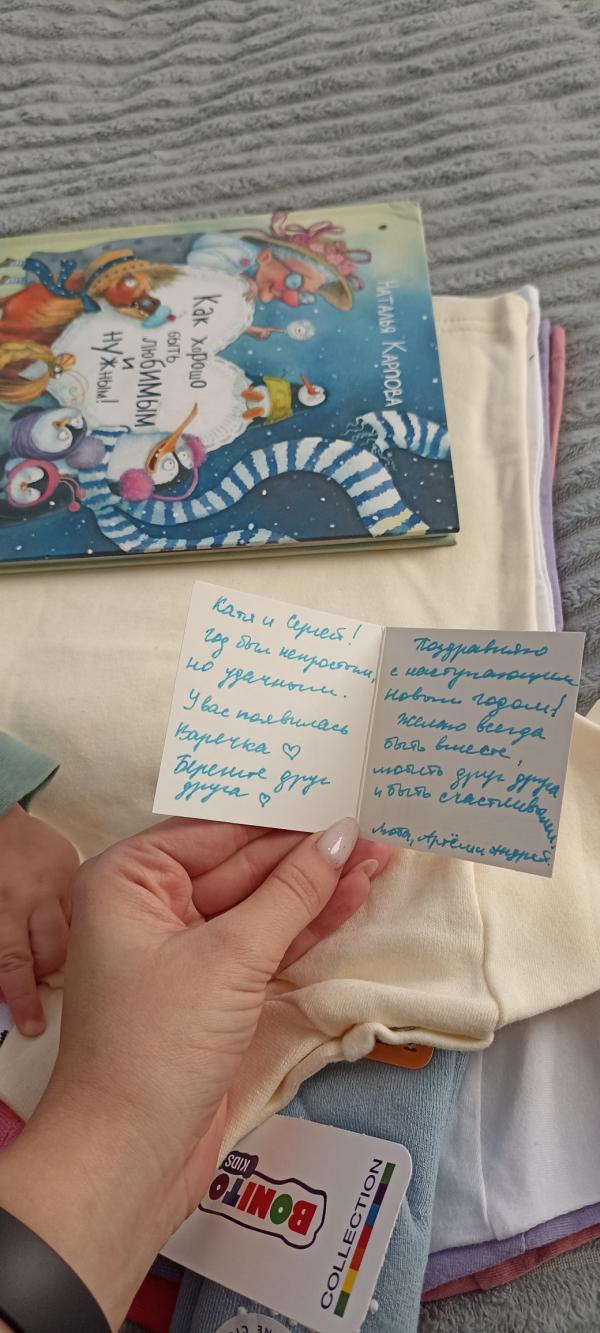 Наталья Карпова
Как хорошо
быть
любимым
и
нужным!
Катя и Сергей!
год был непростым,
но удачным.
У вас появилась
Варечка ♡
Берегите друг
друга ♡
Поздравляю
с наступающим
новым годом!
Желаю всегда
быть вместе,
любить друг друга
и быть счастливыми!
Артём и Андрей.
BONITO
KIDS
COLLECTION